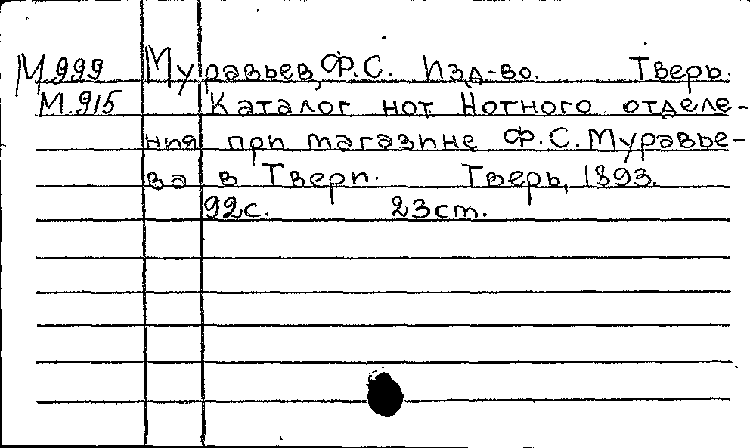 М.999 Муравьев, Ф.С. Изд-во. Тверь.
М.915 Каталог нот Нотного отделе-
ния при магазине Ф.С. Муравье-
ва в Твери. Тверь, 1893.
92с. 23см.